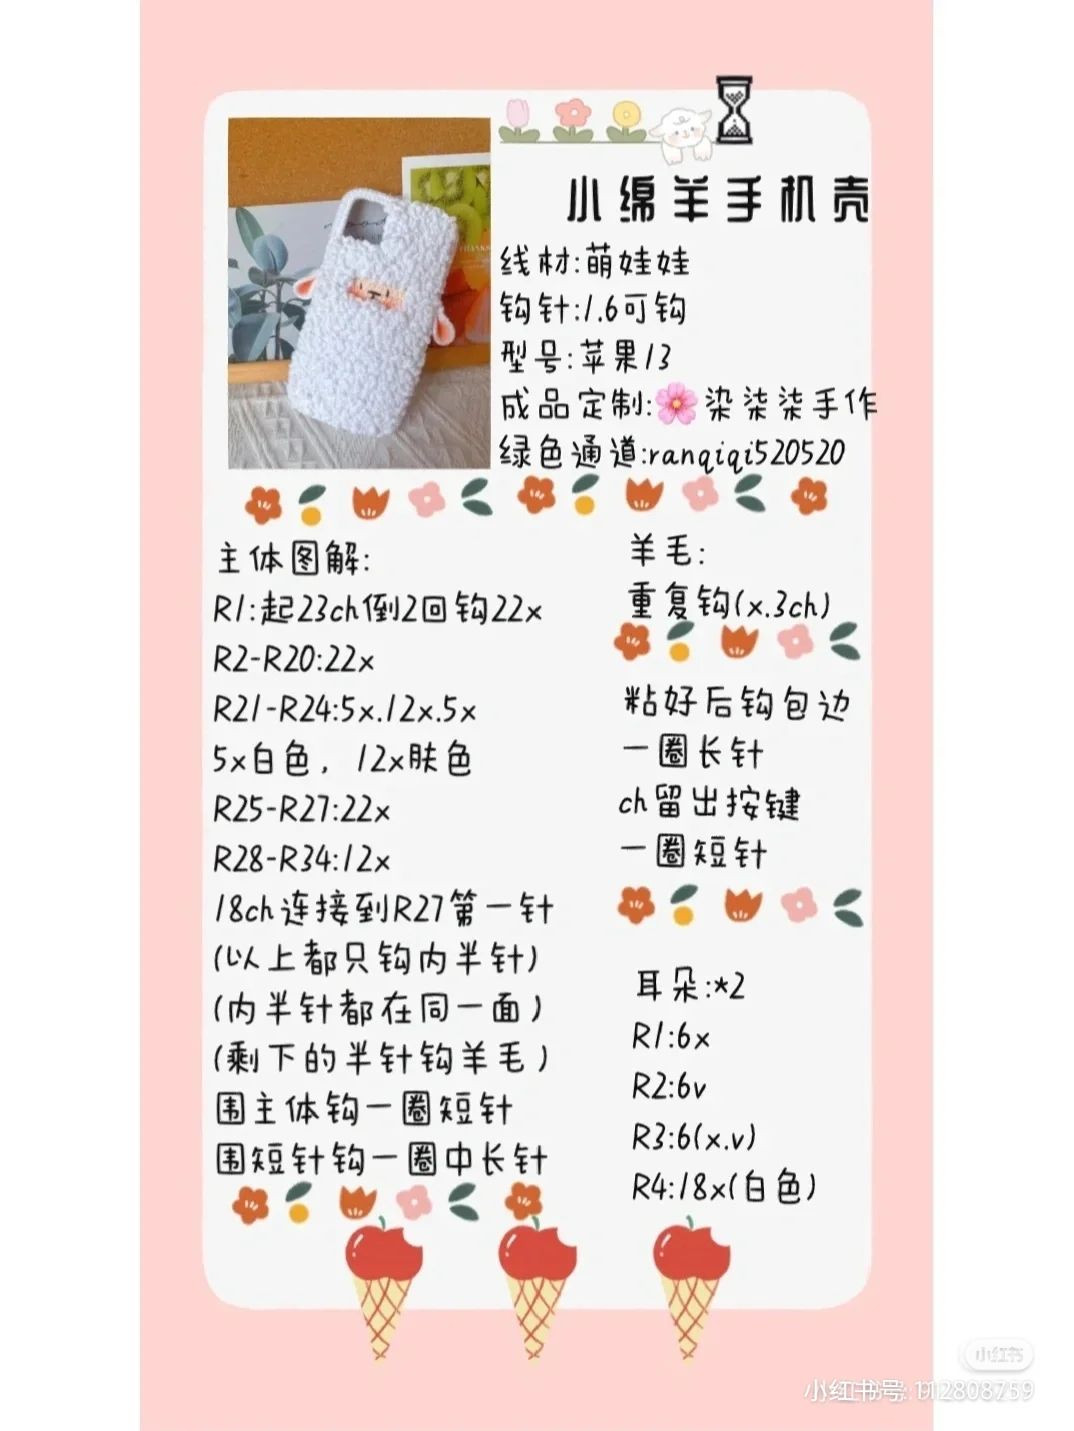 小绵羊手机壳
线材:萌娃娃
钩针:1.6可钩
型号:苹果13
成品定制:🌸染柒柒手作
绿色通道:ranqiqi520520
主体图解:
R1:起23ch倒2回钩22x
R2-R20:22x
R21-R24:5x.12x.5x
5x白色，12x肤色
R25-R27:22x
R28-R34:12x
18ch连接到R27第一针
(以上都只钩内半针)
(内半针都在同一面)
(剩下的半针钩羊毛)
围主体钩一圈短针
围短针钩一圈中长针
羊毛:
重复钩(x.3ch)
粘好后钩包边
一圈长针
ch留出按键
一圈短针
耳朵:*2
R1:6x
R2:6v
R3:6(x.v)
R4:18x(白色)
小红书